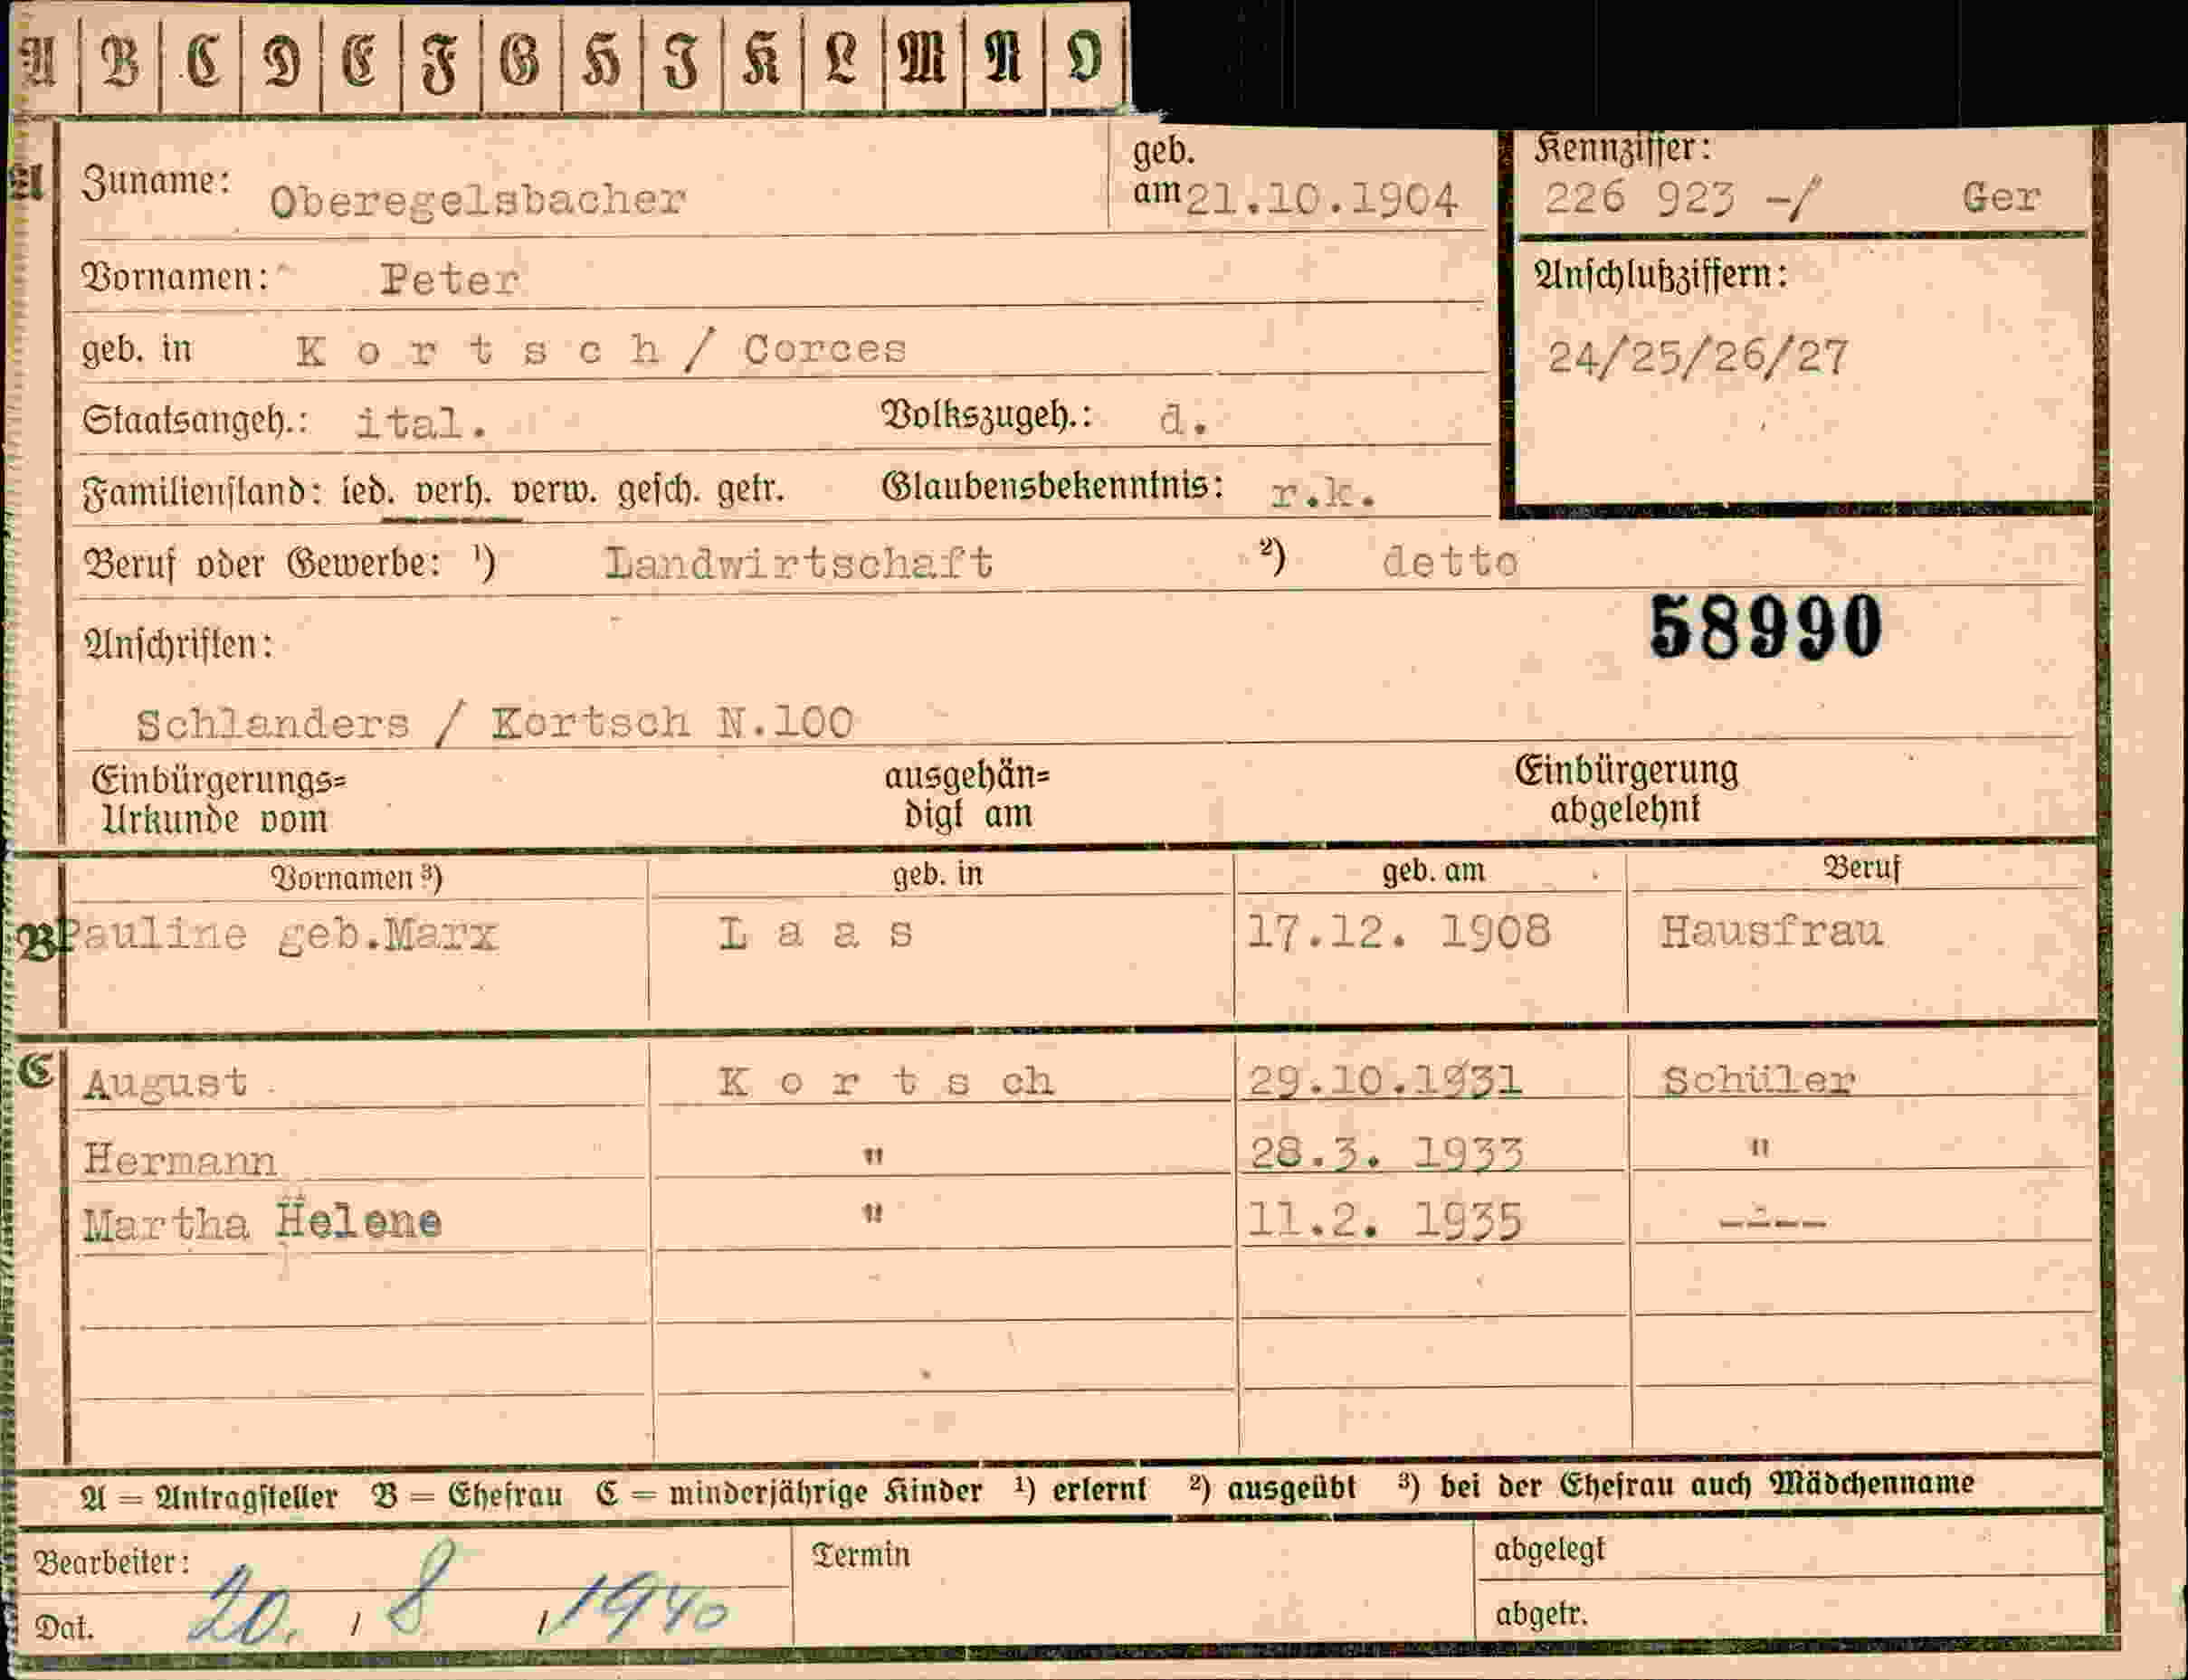 A B C D E F G H I K L M N O
A Zuname: Oberegelsbacher geb. am 21.10.1904
Kennziffer:
226 923 -/ Ger
Vornamen: Peter
Anschlußziffern:
geb. in K o r t s c h / Corces
24/25/26/27
Staatsangeh.: ital. Volkszugeh.: d.
Familienstand: led. verh. verw. gesch. getr. Glaubensbekenntnis: r.k.
Beruf oder Gewerbe: ¹) Landwirtschaft ²) detto
58990
Anschriften:
Schlanders / Kortsch N.100
Einbürgerungs= ausgehän= Einbürgerung
Urkunde vom digt am abgelehnt
Vornamen ³) geb. in geb. am Beruf
B Pauline geb.Marx L a a s 17.12. 1908 Hausfrau
C August K o r t s ch 29.10.1931 Schüler
Hermann " 28.3. 1933 "
Martha Helene " 11.2. 1935 ----
A = Antragsteller B = Ehefrau C = minderjährige Kinder ¹) erlernt ²) ausgeübt ³) bei der Ehefrau auch Mädchenname
Bearbeiter: Termin abgelegt
Dat. 20. / 8 / 1940 abgetr.